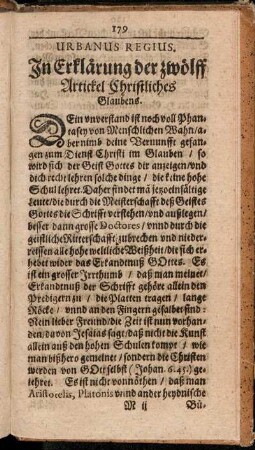 179
URBANUS REGIUS,
In Erklärung der zwölff
Artickel Christliches
Glaubens.
DEin unverstand ist noch voll Phan-
tasey von Menschlichen Wahn/a-
ber nimb deine Vernunfft gefan-
gen zum Dienst Christi im Glauben / so
wird sich der Geist Gottes dir anzeigen/und
dich recht lehren solche dinge / die keine hohe
Schul lehret. Daher findet mā jetzo einfältige
Leute/die durch die Meisterschafft deß Geistes
Gottes die Schrifft verstehen/und außlegen/
besser dann grosse Doctores / unnd durch die
geistliche Ritterschafft zubrechen und nieder-
reissen alle hohe weltliche Weißheit/die sich er-
hebet wider das Erkandtnuß GOttes. Es
ist ein grosser Irrthumb / daß man meinet/
Erkandtnuß der Schrifft gehöre allein den
Predigern zu / die Platten tragen / lange
Röcke / unnd an den Fingern gesalbet sind:
Nein lieber Freund/die Zeit ist nun vorhan-
den/davon Jesaias sagt/daß nicht die Kunst
allein auß den hohen Schulen kompt / wie
man bißhero gemeinet / sondern die Christen
werden von GOtt selbst (Johan. 6. 45.) ge-
lehret. Es ist nicht vonnöthen / daß man
Aristotelis, Platonis unnd ander heydnische
M ij Bü-